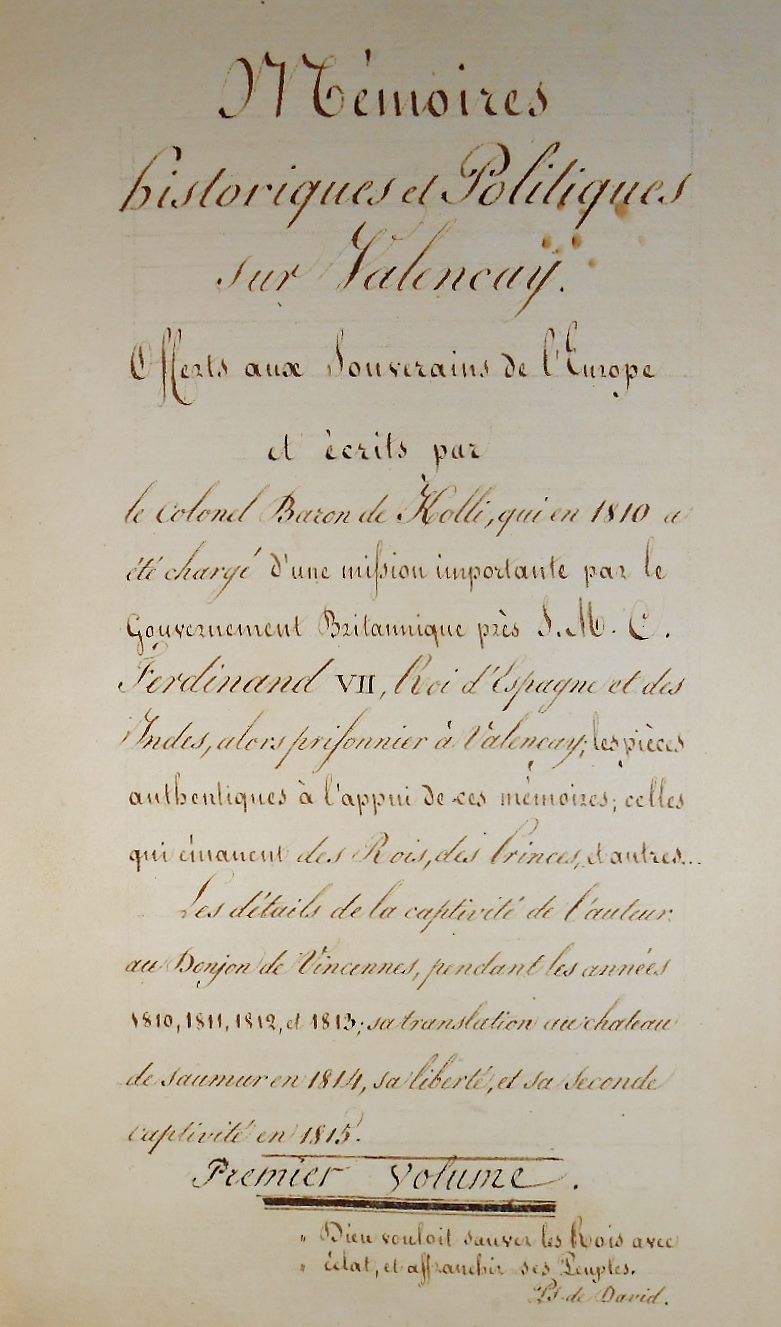 Mémoires
historiques et Politiques
sur Valencaÿ.
Offerts aux Souverains de l'Europe
et ècrits par
le colonel Baron de Kolli, qui en 1810 a
été chargé d'une mission importante par le
Gouvernement Britannique près S. M. C.
Ferdinand VII, Roi d'Espagne et des
Indes, alors prisonnier à Valençay; les pièces
authentiques à l'appui de ces mémoires; celles
qui émanent des Rois, des Princes, et autres...
Les détails de la captivité de l'auteur
au Donjon de Vincennes, pendant les années
1810, 1811, 1812, et 1813; sa translation au chateau
de saumur en 1814, sa liberté, et sa seconde
captivité en 1815.
Premier volume.
" Dieu vouloit sauver les Rois avec
" éclat, et affranchir ses Peuples.
Ps. de David.